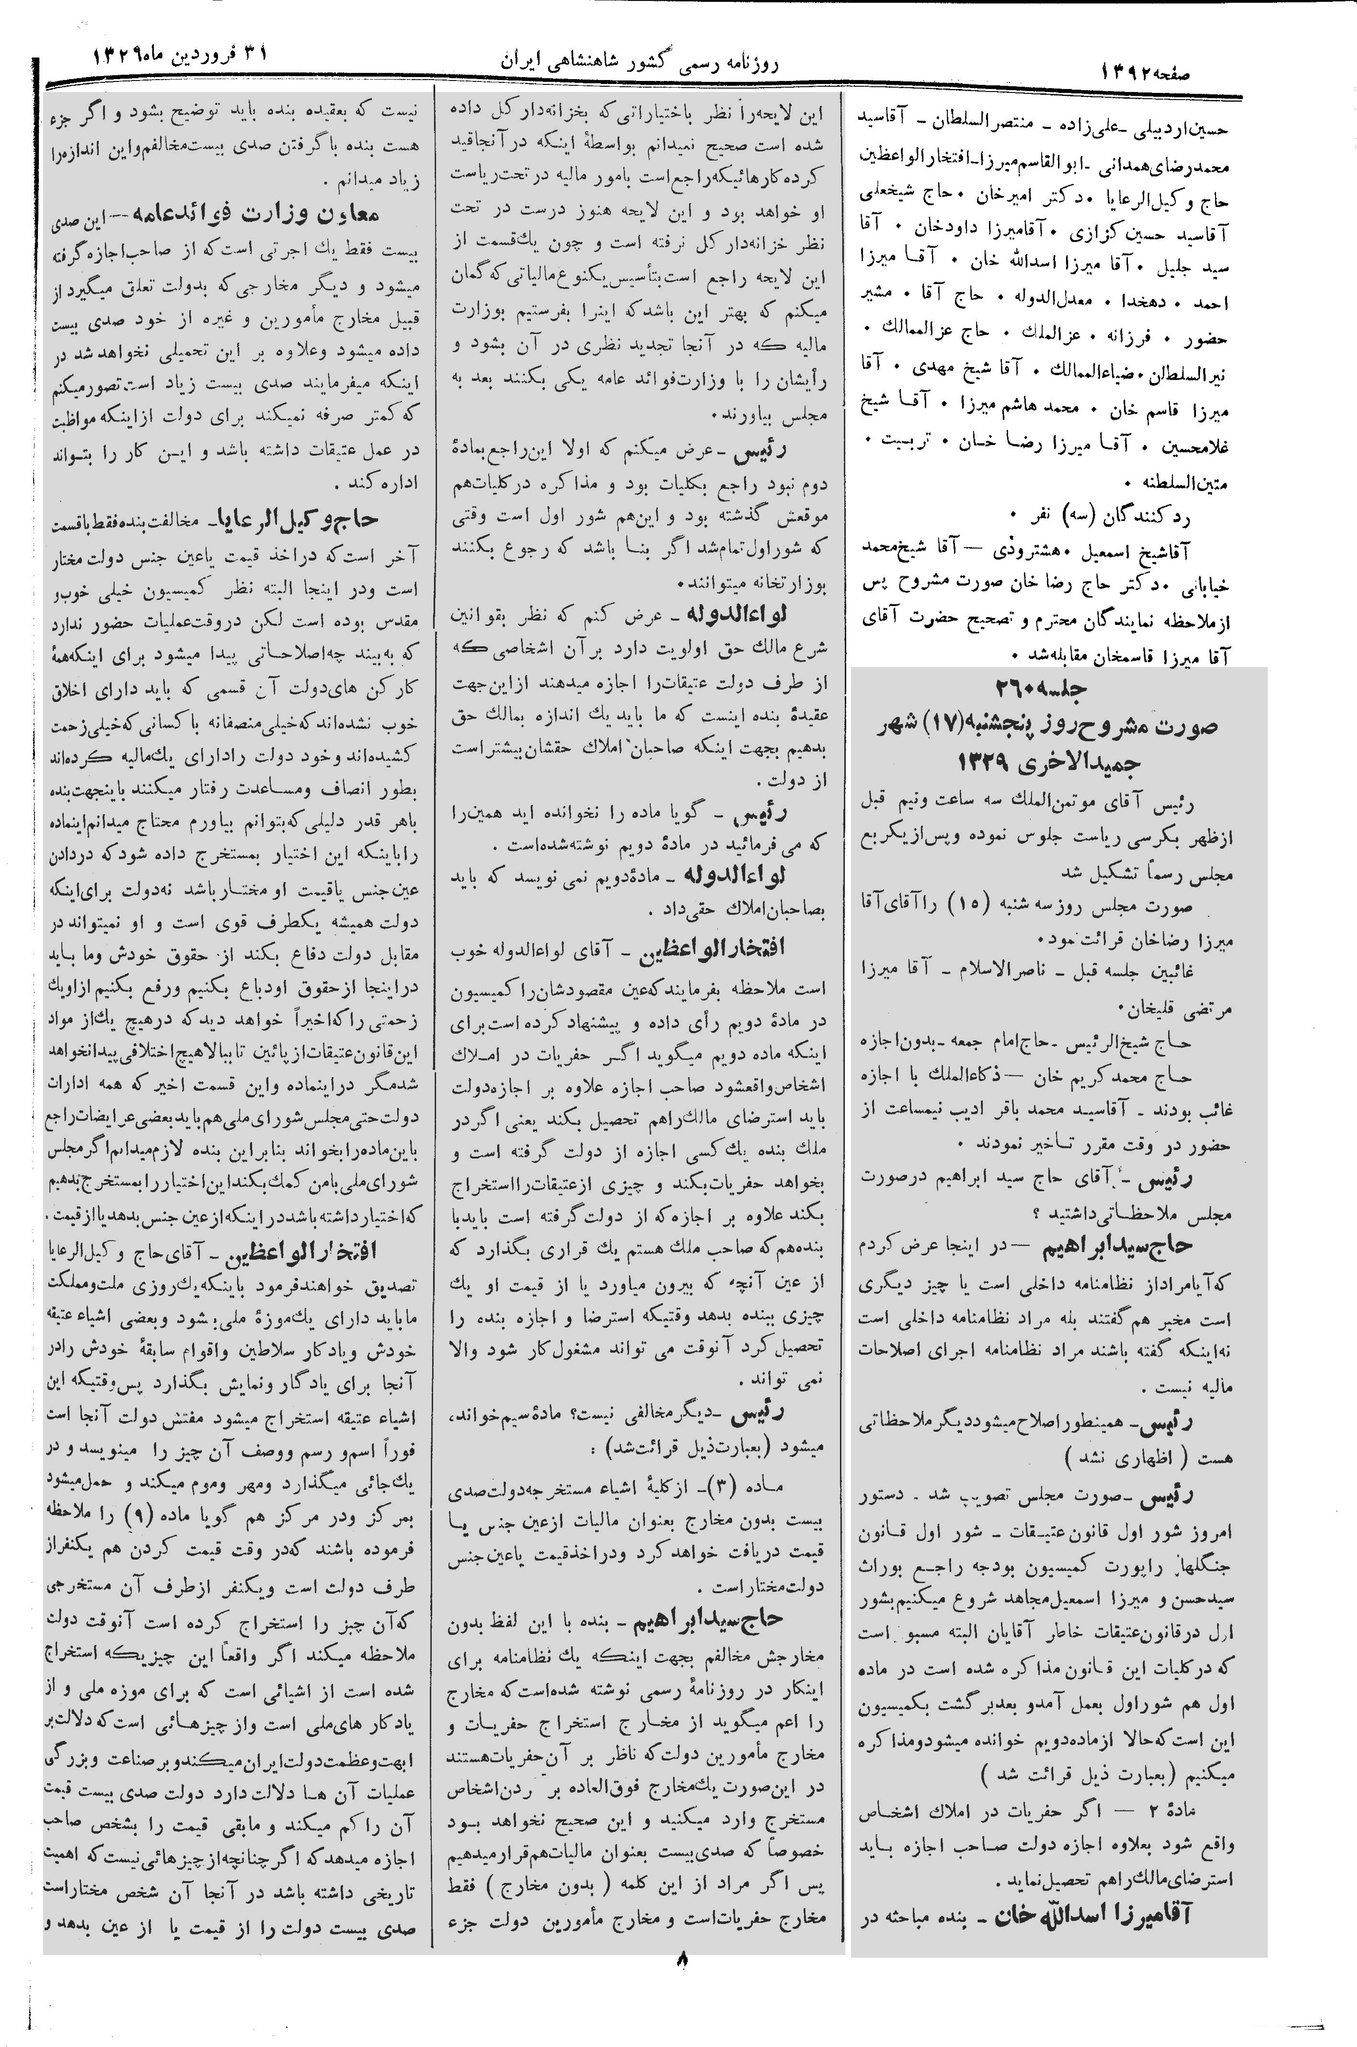 صفحه ۱۳۹۲
روزنامه رسمی کشور شاهنشاهی ایران
۳۱ فروردین ماه ۱۳۲۹
حسین اردبیلی - علی زاده - منتصر السلطان - آقا سید
محمد رضای همدانی - ابوالقاسم میرزا - افتخار الواعظین
حاج وکیل الرعایا ۰ دکتر امیر خان ۰ حاج شیخعلی
آقا سید حسین کزازی ۰ آقا میرزا داود خان ۰ آقا
سید جلیل ۰ آقا میرزا اسدالله خان ۰ آقا میرزا
احمد ۰ دهخدا ۰ معدل الدوله ۰ حاج آقا ۰ مشیر
حضور ۰ فرزانه ۰ عز الملك ۰ حاج عز الممالك ۰
نیر السلطان ۰ ضیاء الممالك ۰ آقا شیخ مهدی ۰ آقا
میرزا قاسم خان ۰ محمد هاشم میرزا ۰ آقا شیخ
غلامحسین ۰ آقا میرزا رضا خان ۰ تربیت ۰
متین السلطنه ۰
رد کنندگان (سه) نفر ۰
آقا شیخ اسمعیل ۰ هشترودی — آقا شیخ محمد
خیابانی ۰ دکتر حاج رضا خان صورت مشروح پس
از ملاحظه نمایندگان محترم و تصحیح حضرت آقای
آقا میرزا قاسمخان مقابله شد ۰
جلسه ۲۶۰
صورت مشروح روز پنجشنبه (۱۷) شهر
جمید الاخری ۱۳۲۹
رئیس آقای موتمن الملك سه ساعت و نیم قبل
از ظهر بکرسی ریاست جلوس نموده و پس از یکربع
مجلس رسماً تشکیل شد
صورت مجلس روز سه شنبه (۱۵) را آقای آقا
میرزا رضا خان قرائت نمود ۰
غائبین جلسه قبل - ناصر الاسلام - آقا میرزا
مرتضی قلیخان ۰
حاج شیخ الرئیس - حاج امام جمعه - بدون اجازه
حاج محمد کریم خان — ذکاء الملك با اجازه
غائب بودند - آقا سید محمد باقر ادیب نیمساعت از
حضور در وقت مقرر تأخیر نمودند ۰
رئیس - آقای حاج سید ابراهیم در صورت
مجلس ملاحظاتی داشتید ؟
حاج سید ابراهیم — در اینجا عرض کردم
که آیا مراد از نظامنامه داخلی است یا چیز دیگری
است مخبر هم گفتند بله مراد نظامنامه داخلی است
نه اینکه گفته باشند مراد نظامنامه اجرای اصلاحات
مالیه نیست .
رئیس - همینطور اصلاح میشود دیگر ملاحظاتی
هست ( اظهاری نشد )
رئیس - صورت مجلس تصویب شد . دستور
امروز شور اول قانون عتیقات - شور اول قانون
جنگلها راپورت کمیسیون بودجه راجع بوراث
سید حسن و میرزا اسمعیل مجاهد شروع میکنیم بشور
اول در قانون عتیقات خاطر آقایان البته مسبوق است
که در کلیات این قانون مذاکره شده است در ماده
اول هم شور اول بعمل آمد و بعد برگشت بکمیسیون
این است که حالا از ماده دویم خوانده میشود و مذاکره
میکنیم (بعبارت ذیل قرائت شد )
مادهٔ ۲ — اگر حفریات در املاك اشخاص
واقع شود بعلاوه اجازه دولت صاحب اجازه باید
استرضای مالك را هم تحصیل نماید .
آقا میرزا اسدالله خان - بنده مباحثه در
این لایحه را نظر باختیاراتی که بخزانه دار کل داده
شده است صحیح نمیدانم بواسطهٔ اینکه در آنجا قید
کرده کارهائیکه راجع است بامور مالیه در تحت ریاست
او خواهد بود و این لایحه هنوز درست در تحت
نظر خزانه دار کل نرفته است و چون یك قسمت از
این لایحه راجع است بتأسیس یکنوع مالیاتی که گمان
میکنم که بهتر این باشد که اینرا بفرستیم بوزارت
مالیه که در آنجا تجدید نظری در آن بشود و
رأیشان را با وزارت فوائد عامه یکی بکنند بعد به
مجلس بیاورند ۰
رئیس - عرض میکنم که اولا این راجع بمادهٔ
دوم نبود راجع بکلیات بود و مذاکره در کلیات هم
موقعش گذشته بود و این هم شور اول است وقتی
که شور اول تمام شد اگر بنا باشد که رجوع بکنند
بوزارتخانه میتوانند ۰
لواء الدوله - عرض کنم که نظر بقوانین
شرع مالك حق اولویت دارد بر آن اشخاصی که
از طرف دولت عتیقات را اجازه میدهند از این جهت
عقیدهٔ بنده اینست که ما باید یك اندازه بمالك حق
بدهیم بجهت اینکه صاحبان املاك حقشان بیشتر است
از دولت .
رئیس - گویا ماده را نخوانده اید همین را
که می فرمائید در مادهٔ دویم نوشته شده است .
لواء الدوله - مادهٔ دویم نمی نویسد که باید
بصاحبان املاك حقی داد .
افتخار الواعظین - آقای لواء الدوله خوب
است ملاحظه بفرمایند که عین مقصودشان را کمیسیون
در مادهٔ دویم رأی داده و پیشنهاد کرده است برای
اینکه ماده دویم میگوید اگر حفریات در املاك
اشخاص واقعشود صاحب اجازه علاوه بر اجازه دولت
باید استرضای مالك را هم تحصیل بکند یعنی اگر در
ملك بنده یك کسی اجازه از دولت گرفته است و
بخواهد حفریات بکند و چیزی از عتیقات را استخراج
بکند علاوه بر اجازه که از دولت گرفته است باید با
بنده هم که صاحب ملك هستم یك قراری بگذارد که
از عین آنچه که بیرون میاورد یا از قیمت او یك
چیزی ببنده بدهد وقتیکه استرضا و اجازه بنده را
تحصیل کرد آنوقت می تواند مشغول کار شود والا
نمی تواند .
رئیس - دیگر مخالفی نیست؟ مادهٔ سیم خوانده
میشود (بعبارت ذیل قرائت شد) :
ماده (۳) - از کلیهٔ اشیاء مستخرجه دولت صدی
بیست بدون مخارج بعنوان مالیات از عین جنس یا
قیمت دریافت خواهد کرد و در اخذ قیمت یا عین جنس
دولت مختار است .
حاج سید ابراهیم - بنده با این لفظ بدون
مخارجش مخالفم بجهت اینکه یك نظامنامه برای
اینکار در روزنامهٔ رسمی نوشته شده است که مخارج
را اعم میگوید از مخارج استخراج حفریات و
مخارج مأمورین دولت که ناظر بر آن حفریات هستند
در این صورت یك مخارج فوق العاده بر گردن اشخاص
مستخرج وارد میکنید و این صحیح نخواهد بود
خصوصاً که صدی بیست بعنوان مالیات هم قرار میدهیم
پس اگر مراد از این کلمه ( بدون مخارج ) فقط
مخارج حفریات است و مخارج مأمورین دولت جزء
نیست که بعقیده بنده باید توضیح بشود و اگر جزء
هست بنده با گرفتن صدی بیست مخالفم و این اندازه را
زیاد میدانم .
معاون وزارت فوائد عامه — این صدی
بیست فقط یك اجرتی است که از صاحب اجازه گرفته
میشود و دیگر مخارجی که بدولت تعلق میگیرد از
قبیل مخارج مأمورین و غیره از خود صدی بیست
داده میشود و علاوه بر این تحمیلی نخواهد شد در
اینکه میفرمایند صدی بیست زیاد است تصور میکنم
که کمتر صرفه نمیکند برای دولت از اینکه مواظبت
در عمل عتیقات داشته باشد و این کار را بتواند
اداره کند .
حاج وکیل الرعایا - مخالفت بنده فقط با قسمت
آخر است که در اخذ قیمت یا عین جنس دولت مختار
است و در اینجا البته نظر کمیسیون خیلی خوب و
مقدس بوده است لکن در وقت عملیات حضور ندارد
که به بیند چه اصلاحاتی پیدا میشود برای اینکه همهٔ
کارکن های دولت آن قسمی که باید دارای اخلاق
خوب نشده اند که خیلی منصفانه با کسانی که خیلی زحمت
کشیده اند و خود دولت را دارای یك مالیه کرده اند
بطور انصاف و مساعدت رفتار میکنند باینجهت بنده
باهر قدر دلیلی که بتوانم بیاورم محتاج میدانم اینماده
را باینکه این اختیار بمستخرج داده شود که در دادن
عین جنس یا قیمت او مختار باشد نه دولت برای اینکه
دولت همیشه یکطرف قوی است و او نمیتواند در
مقابل دولت دفاع بکند از حقوق خودش و ما باید
در اینجا از حقوق او دباع بکنیم و رفع بکنیم از او یك
زحمتی را که اخیراً خواهد دید که در هیچ یك از مواد
این قانون عتیقات از پائین تا ببالا هیچ اختلافی پیدا نخواهد
شد مگر در اینماده و این قسمت اخیر که همه ادارات
دولت حتی مجلس شورای ملی هم باید بعضی عرایضات راجع
باین ماده را بخواند بنا بر این بنده لازم میدانم اگر مجلس
شورای ملی با من کمك بکند این اختیار را بمستخرج بدهیم
که اختیار داشته باشد در اینکه از عین جنس بدهد یا از قیمت .
افتخار الواعظین - آقای حاج وکیل الرعایا
تصدیق خواهند فرمود باینکه یك روزی ملت و مملکت
ما باید دارای یك موزهٔ ملی بشود و بعضی اشیاء عتیقه
خودش و یادکار سلاطین و اقوام سابقهٔ خودش را در
آنجا برای یادگار و نمایش بگذارد پس وقتیکه این
اشیاء عتیقه استخراج میشود مفتش دولت آنجا است
فوراً اسم و رسم و وصف آن چیز را مینویسد و در
یك جائی میگذارد و مهر و موم میکند و حمل میشود
بمرکز و در مرکز هم گویا ماده (۹) را ملاحظه
فرموده باشند که در وقت قیمت کردن هم یکنفر از
طرف دولت است و یکنفر از طرف آن مستخرجی
که آن چیز را استخراج کرده است آنوقت دولت
ملاحظه میکند اگر واقعاً این چیزیکه استخراج
شده است از اشیائی است که برای موزه ملی و از
یادکار های ملی است و از چیزهائی است که دلالت بر
ابهت و عظمت دولت ایران میکند و بر صناعت و بزرگی
عملیات آن ها دلالت دارد دولت صدی بیست قیمت
آن را کم میکند و مابقی قیمت را بشخص صاحب
اجازه میدهد که اگر چنانچه از چیزهائی نیست که اهمیت
تاریخی داشته باشد در آنجا آن شخص مختار است
صدی بیست دولت را از قیمت یا از عین بدهد و
۸